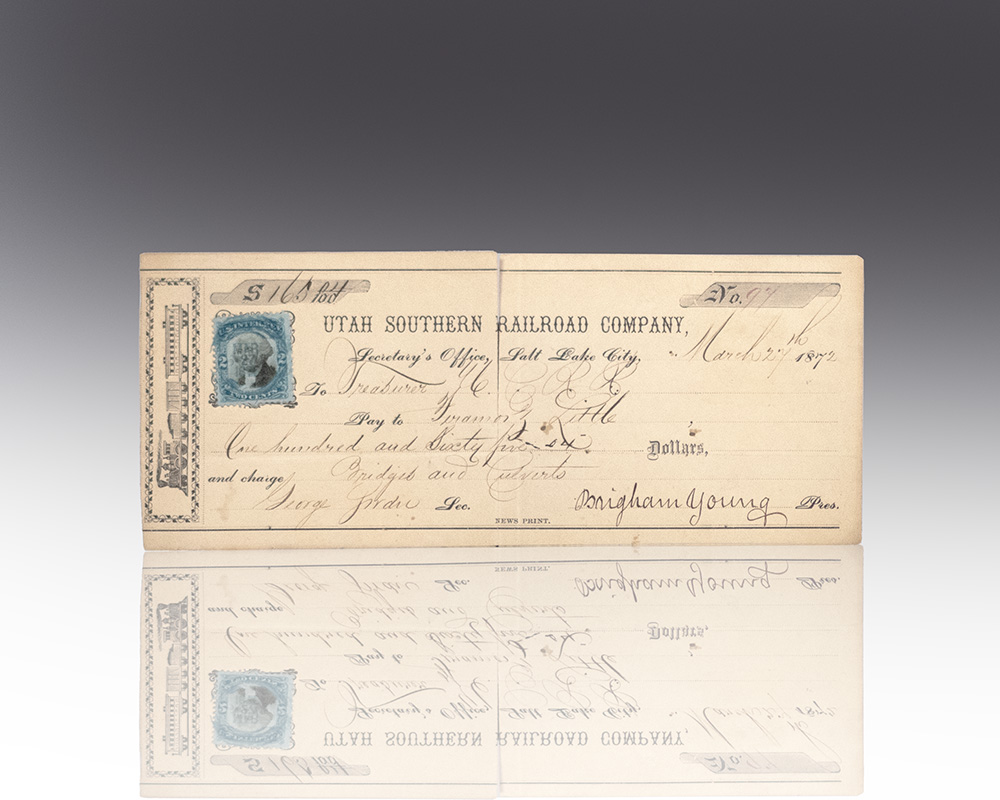 $ 165 No. 97
UTAH SOUTHERN RAILROAD COMPANY,
Secretary's Office, Salt Lake City, March 27th 1872
U.S. INTER. REV.
TWO CENTS
To Treasurer
Pay to Little
One hundred and Sixty five Dollars,
and charge Bridges and Culverts
George Sec. Brigham Young Pres.
NEWS PRINT.